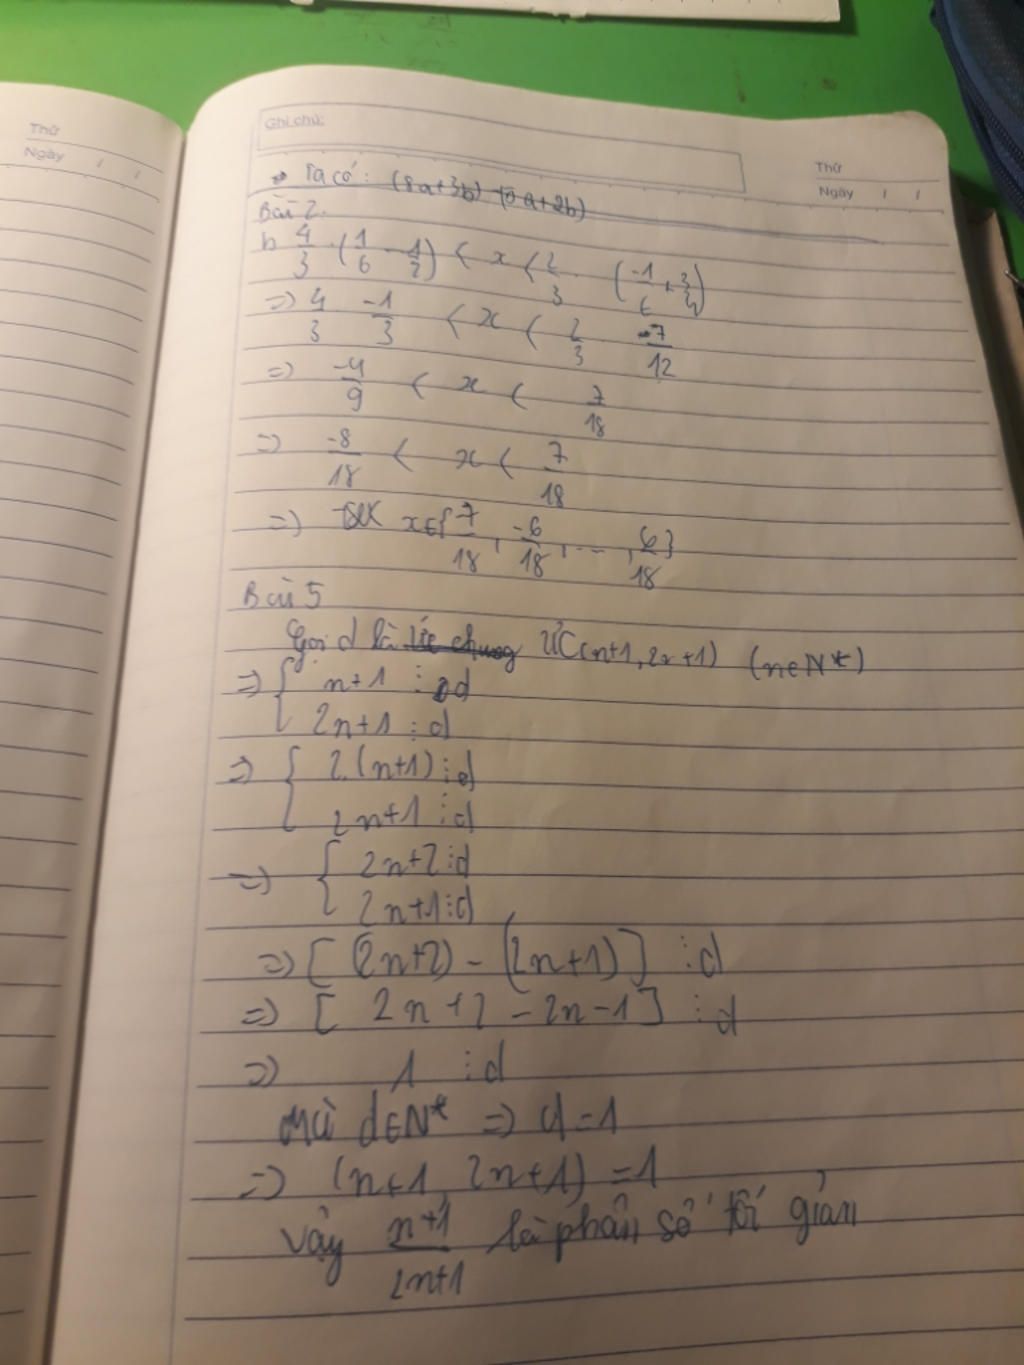 Thứ
Ngày / /
Ghi chú:
Thứ
Ngày / /
Ta có: (8a+3b) - (5a+2b)
Bài 2.
b 4/3 . (1/6 - 1/2) < x < 2/3 . (-1/6 + 3/4)
=> 4/3 -1/3 < x < 2/3 7/12
=> -4/9 < x < 7/18
=> -8/18 < x < 7/18
=> x∈{ 7/18, -6/18, ..., 6/18 }
Bài 5
Gọi d là ước chung ƯC(n+1, 2n+1) (n∈N*)
=> { n+1 ⋮ d
2n+1 ⋮ d
=> { 2.(n+1) ⋮ d
2n+1 ⋮ d
=> { 2n+2 ⋮ d
2n+1 ⋮ d
=> [ (2n+2) - (2n+1) ] ⋮ d
=> [ 2n+2 - 2n-1 ] ⋮ d
=> 1 ⋮ d
Mà d∈N* => d=1
=> (n+1, 2n+1) = 1
Vậy n+1/2n+1 là phân số tối giản